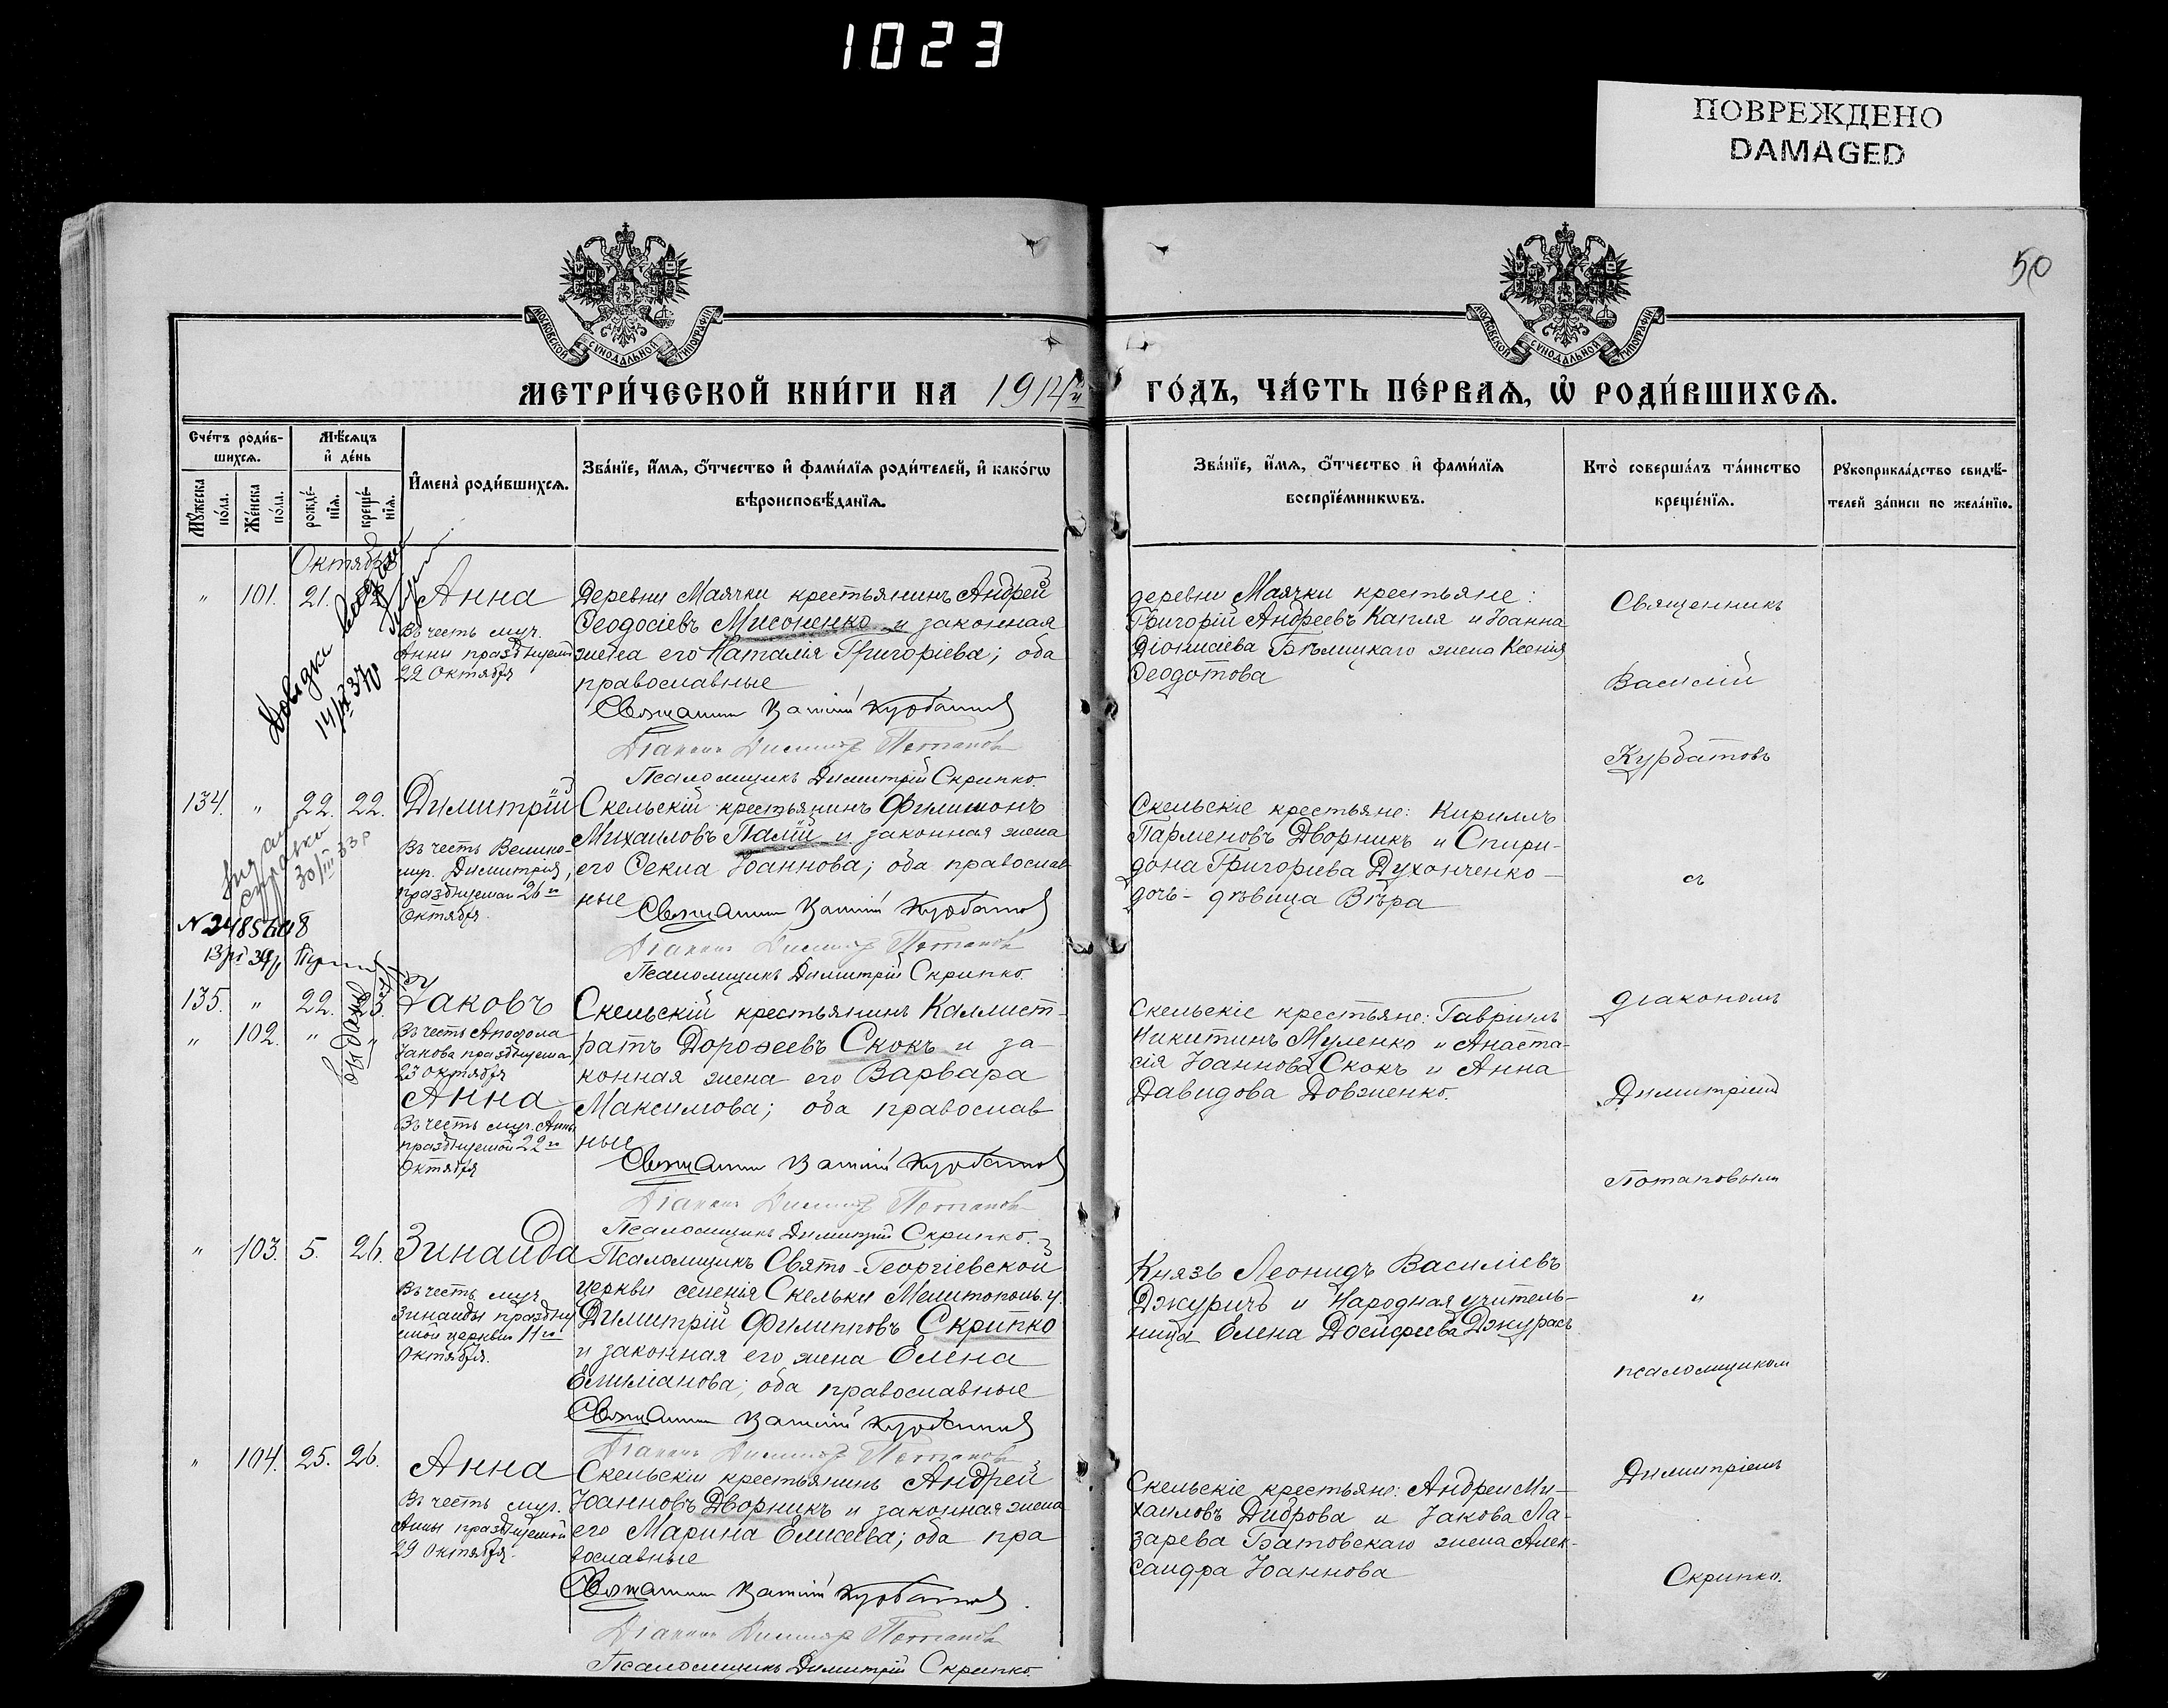 1023
ПОВРЕЖДЕНО
DAMAGED
50
МОСКОВСКОЙ СѴНОДАЛЬНОЙ ТИПОГРАФІИ
МОСКОВСКОЙ СѴНОДАЛЬНОЙ ТИПОГРАФІИ
МЕТРИ́ЧЕСКОЙ КНИ́ГИ НА 1914й
ГО́ДЪ, ЧА́СТЬ ПЕ́РВАѦ, Ѡ҆ РОДИ́ВШИХСѦ.
Сче́тъ роди́в-
шихсѧ.
Мꙋ́жеска по́ла.
Же́нска по́ла.
Мѣ́сѧцъ
и҆ де́нь
рожде́-
нїѧ.
креще́-
нїѧ.
И҆мена̀ роди́вшихсѧ.
Зва́нїе, и҆́мѧ, ѻ҆́тчество и҆ фами́лїѧ роди́телей, и҆ како́гѡ
вѣроисповѣ́данїѧ.
Зва́нїе, и҆́мѧ, ѻ҆́тчество и҆ фами́лїѧ
воспрїе́мникѡвъ.
Кто̀ соверша́лъ та́инство
креще́нїѧ.
Рꙋкоприкла́дство свидѣ́-
телей за́писи по жела́нїю.
Октябрь
" 101. 21. Анна
Въ честь муч.
Анны празднуемой
22 Октября
Довідка
14/IX 37
Деревни Маячки крестьянинъ Андрей
Ѳеодосіевъ Мисоненко и законная
жена его Наталія Григоріева; оба
православные
Священникъ Василій Курбатовъ
Діаконъ Димитрій Потаповъ
Псаломщикъ Димитрій Скрипко.
деревни Маячки крестьяне:
Григорій Андреевъ Капля и Іоанна
Діонисіева Бѣлицкаго жена Ксенія
Ѳеодотова
Священникъ
Василій
Курбатовъ
134. " 22. 22. Димитрій
Въ честь Велико-
муч. Димитрія,
празднуемаго 26го
Октября
справка
30/III 33 р
Скельскій крестьянинъ Филимонъ
Михаиловъ Палій и законная жена
его Ѳекла Іоаннова; оба православ
ные
Священникъ Василій Курбатовъ
Діаконъ Димитрій Потаповъ
Псаломщикъ Димитрій Скрипко.
Скельскіе крестьяне: Кириллъ
Парменовъ Дворникъ и Спири-
дона Григорьева Духонченко -
дочь - дѣвица Вѣра
съ
135. " 22. 23. Іаковъ
" 102. " "
Въ честь Апостола
Іакова празднуемаго
23 Октября
Анна
Въ честь муч. Анны
празднуемой 22го
Октября
Скельскій крестьянинъ Каллист-
ратъ Дороѳеевъ Скокъ и за-
конная жена его Варвара
Максимова; оба православ
ные
Священникъ Василій Курбатовъ
Діаконъ Димитрій Потаповъ
Псаломщикъ Димитрій Скрипко.
Скельскіе крестьяне: Гавріилъ
Никитинъ Муленко и Анаста-
сія Іоаннова Скокъ и Анна
Давидова Довженко.
діакономъ
Димитріемъ
Потаповымъ
" 103. 5. 26. Зинаида
Въ честь муч.
Зинаиды праздну
емой церковью 11го
Октября.
Псаломщикъ Свято-Георгіевской
церкви селенія Скельки Мелитопол. у.
Димитрій Филипповъ Скрипко
и законная его жена Елена
Емиліанова; оба православные
Священникъ Василій Курбатовъ
Діаконъ Димитрій Потаповъ
Князь Леонидъ Василіевъ
Джуричъ и Народная учитель-
ница Елена Досиѳеева Джурасъ
и
псаломщикомъ
" 104. 25. 26. Анна
Въ честь муч.
Анны празднуемой
29 Октября.
Скельскій крестьянинъ Андрей
Іоанновъ Дворникъ и законная жена
его Марина Елисеева; оба пра
вославные
Священникъ Василій Курбатовъ
Діаконъ Димитрій Потаповъ
Псаломщикъ Димитрій Скрипко.
Скельскіе крестьяне: Андрей Ми-
хаиловъ Диброва и Іакова Ла-
зарева Батовскаго жена Алек-
сандра Іоаннова
Димитріемъ
Скрипко.